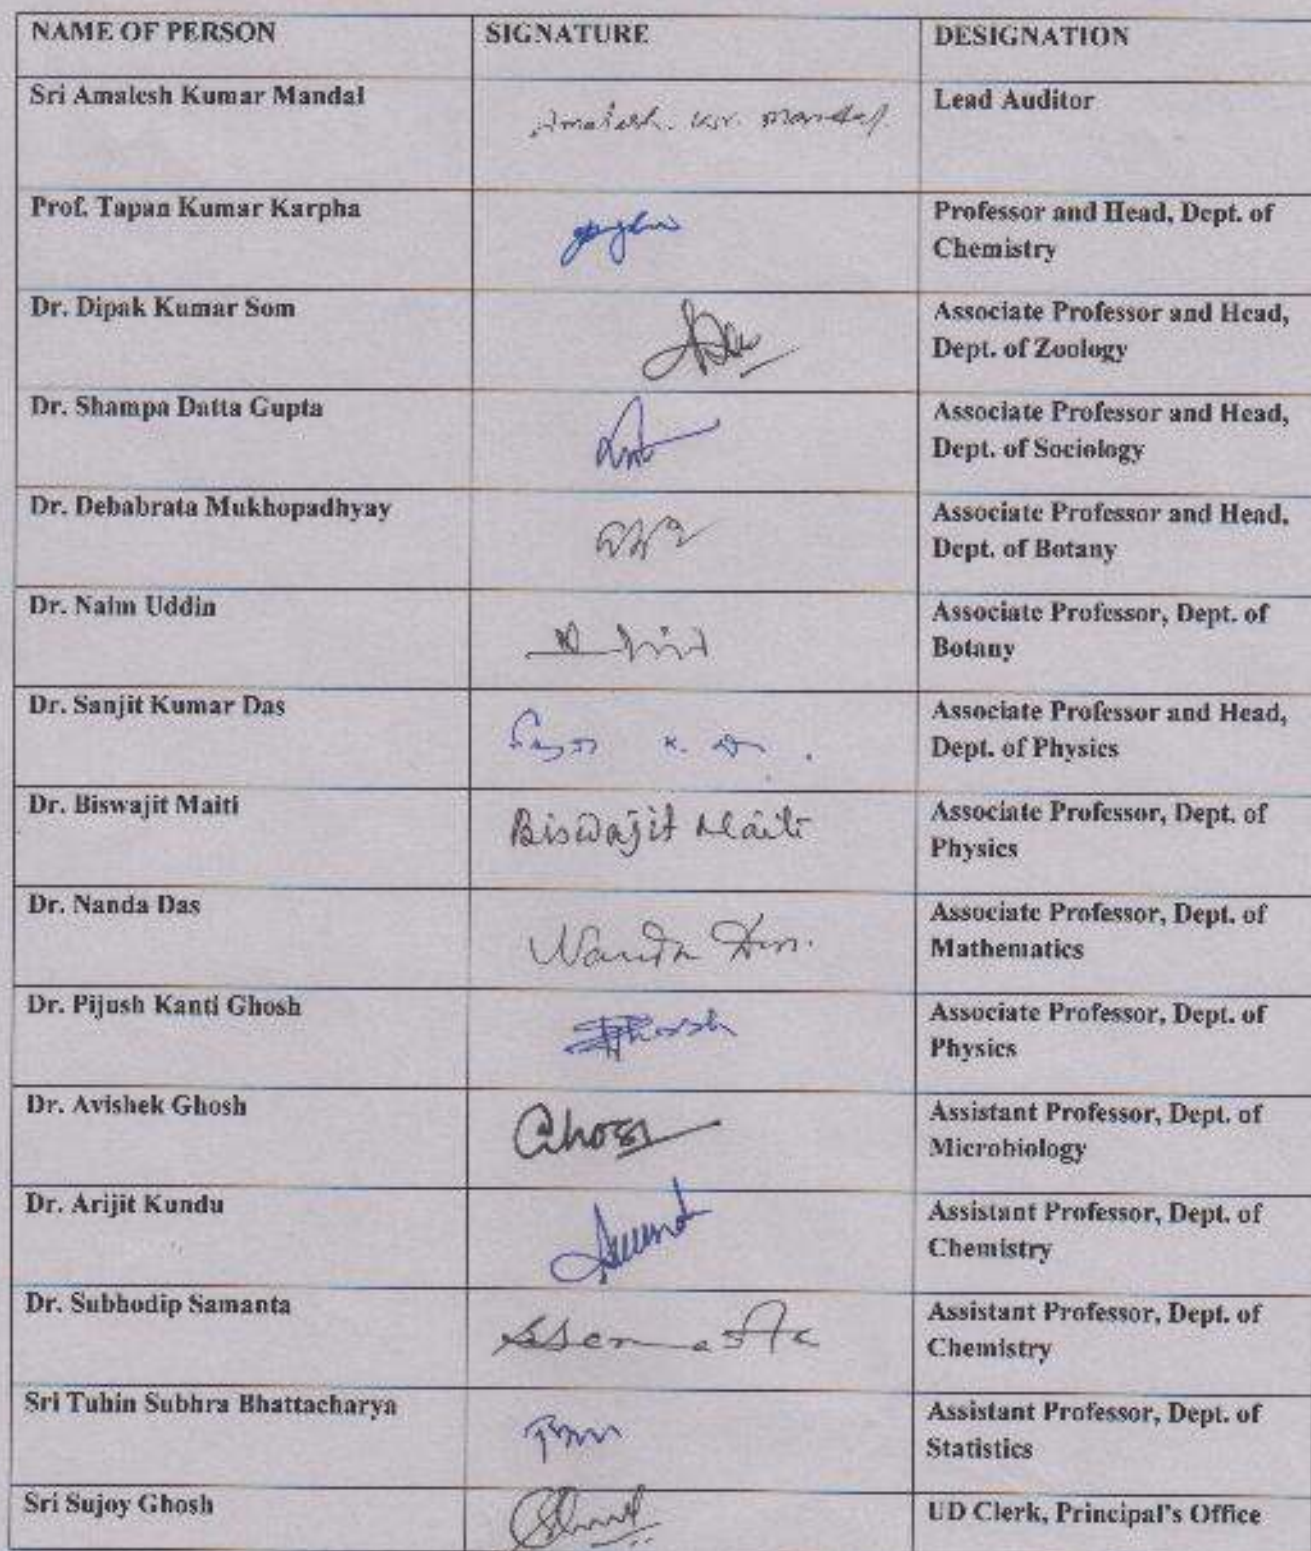 NAME OF PERSON SIGNATURE DESIGNATION
Sri Amalesh Kumar Mandal Amalesh. Kr. Mandal. Lead Auditor
Prof. Tapan Kumar Karpha Professor and Head, Dept. of
Chemistry
Dr. Dipak Kumar Som Associate Professor and Head,
Dept. of Zoology
Dr. Shampa Datta Gupta Associate Professor and Head,
Dept. of Sociology
Dr. Debabrata Mukhopadhyay Associate Professor and Head,
Dept. of Botany
Dr. Naim Uddin Associate Professor, Dept. of
Botany
Dr. Sanjit Kumar Das Associate Professor and Head,
Dept. of Physics
Dr. Biswajit Maiti Biswajit Maiti Associate Professor, Dept. of
Physics
Dr. Nanda Das Nanda Das. Associate Professor, Dept. of
Mathematics
Dr. Pijush Kanti Ghosh Associate Professor, Dept. of
Physics
Dr. Avishek Ghosh Assistant Professor, Dept. of
Microbiology
Dr. Arijit Kundu Assistant Professor, Dept. of
Chemistry
Dr. Subhodip Samanta Assistant Professor, Dept. of
Chemistry
Sri Tuhin Subhra Bhattacharya Assistant Professor, Dept. of
Statistics
Sri Sujoy Ghosh UD Clerk, Principal's Office